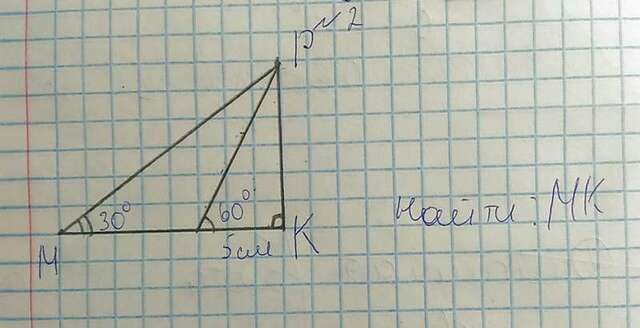 P №2
30°
60°
M
5см
K
Найти: MK